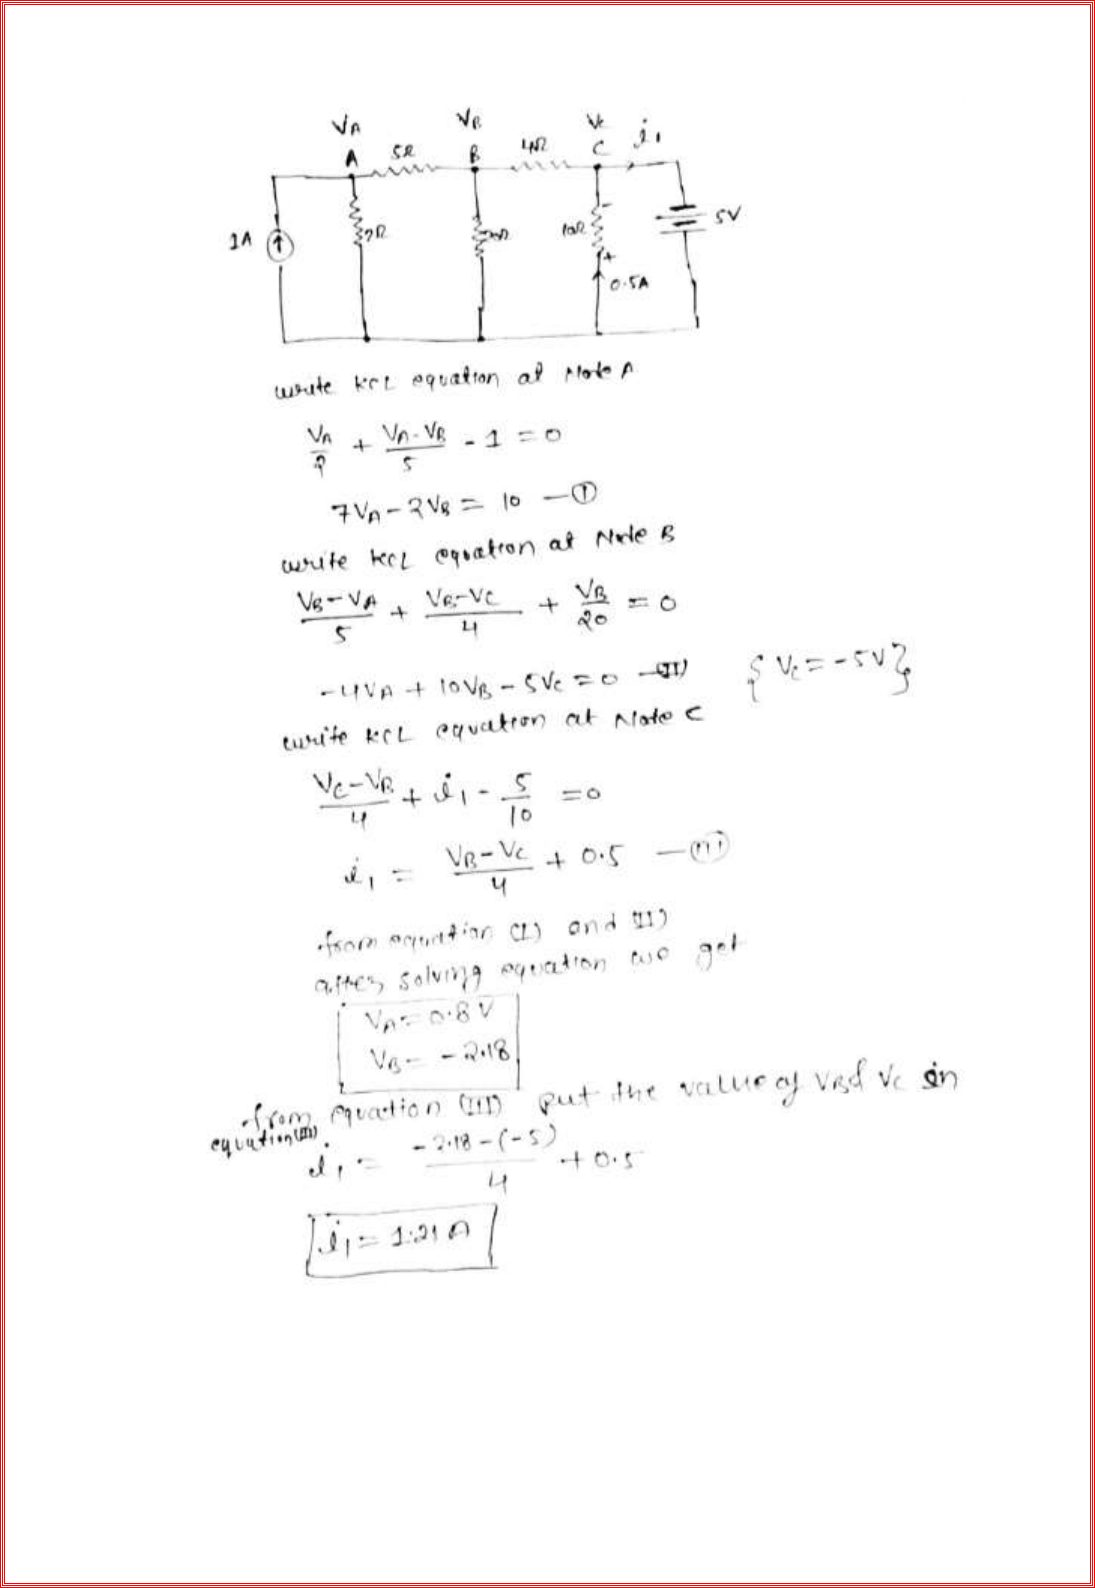 VA VB Vc i1
A 5Ω B 4Ω C
1A 2Ω 20Ω 10Ω - 5V
+
0.5A
write KCL equation at Note A
VA/2 + VA-VB/5 - 1 = 0
7VA - 2VB = 10 — (I)
write KCL equation at Node B
VB-VA/5 + VB-VC/4 + VB/20 = 0
-4VA + 10VB - 5VC = 0 — (II) { Vc = -5V }
write KCL equation at Note C
VC-VB/4 + i1 - 5/10 = 0
i1 = VB-VC/4 + 0.5 — (III)
from equation (I) and (II)
after solving equation we get
VA = 0.8 V
VB = -2.18
from equation (III) put the value of VB & Vc in
equation (III)
i1 = -2.18-(-5)/4 + 0.5
i1 = 1.21 A